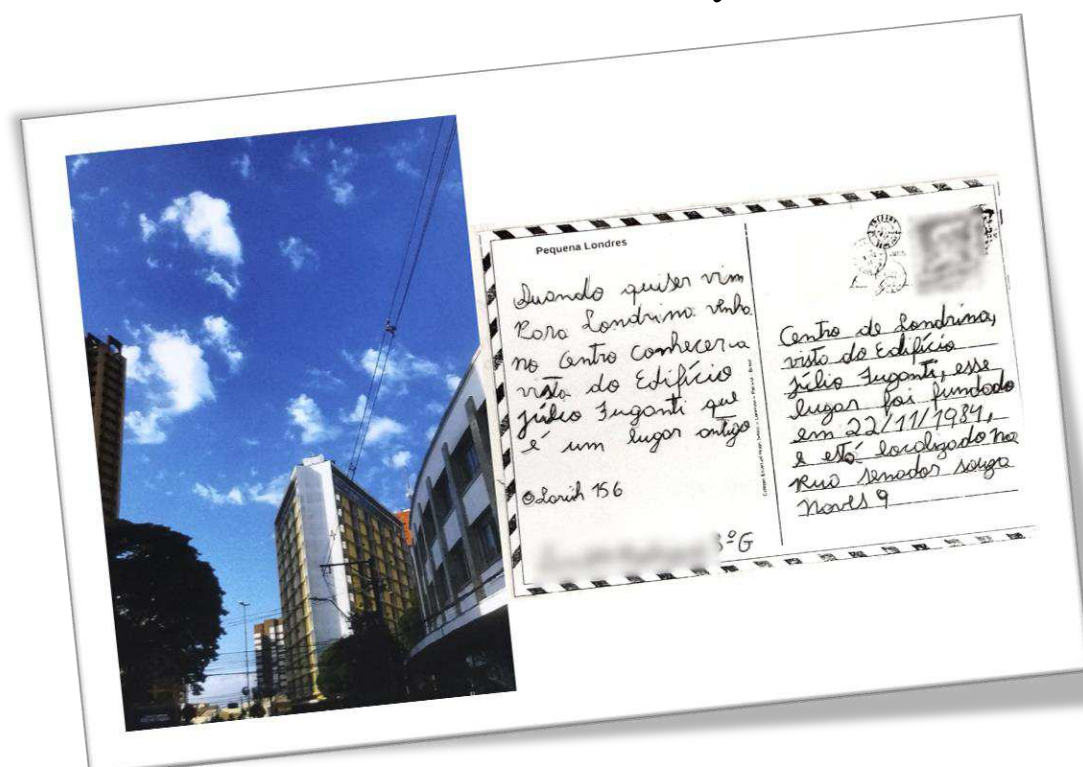 Pequena Londres
Quando quiser vim
Para Londrina vinha
no centro conhecer a
vista do Edifício
Júlio Fuganti que
é um lugar antigo
156
3ºG
Centro de Londrina,
vista do Edifício
Júlio Fuganti, esse
lugar foi fundado
em 22/11/1984,
e está localizado na
Rua senador souza
Naves 9